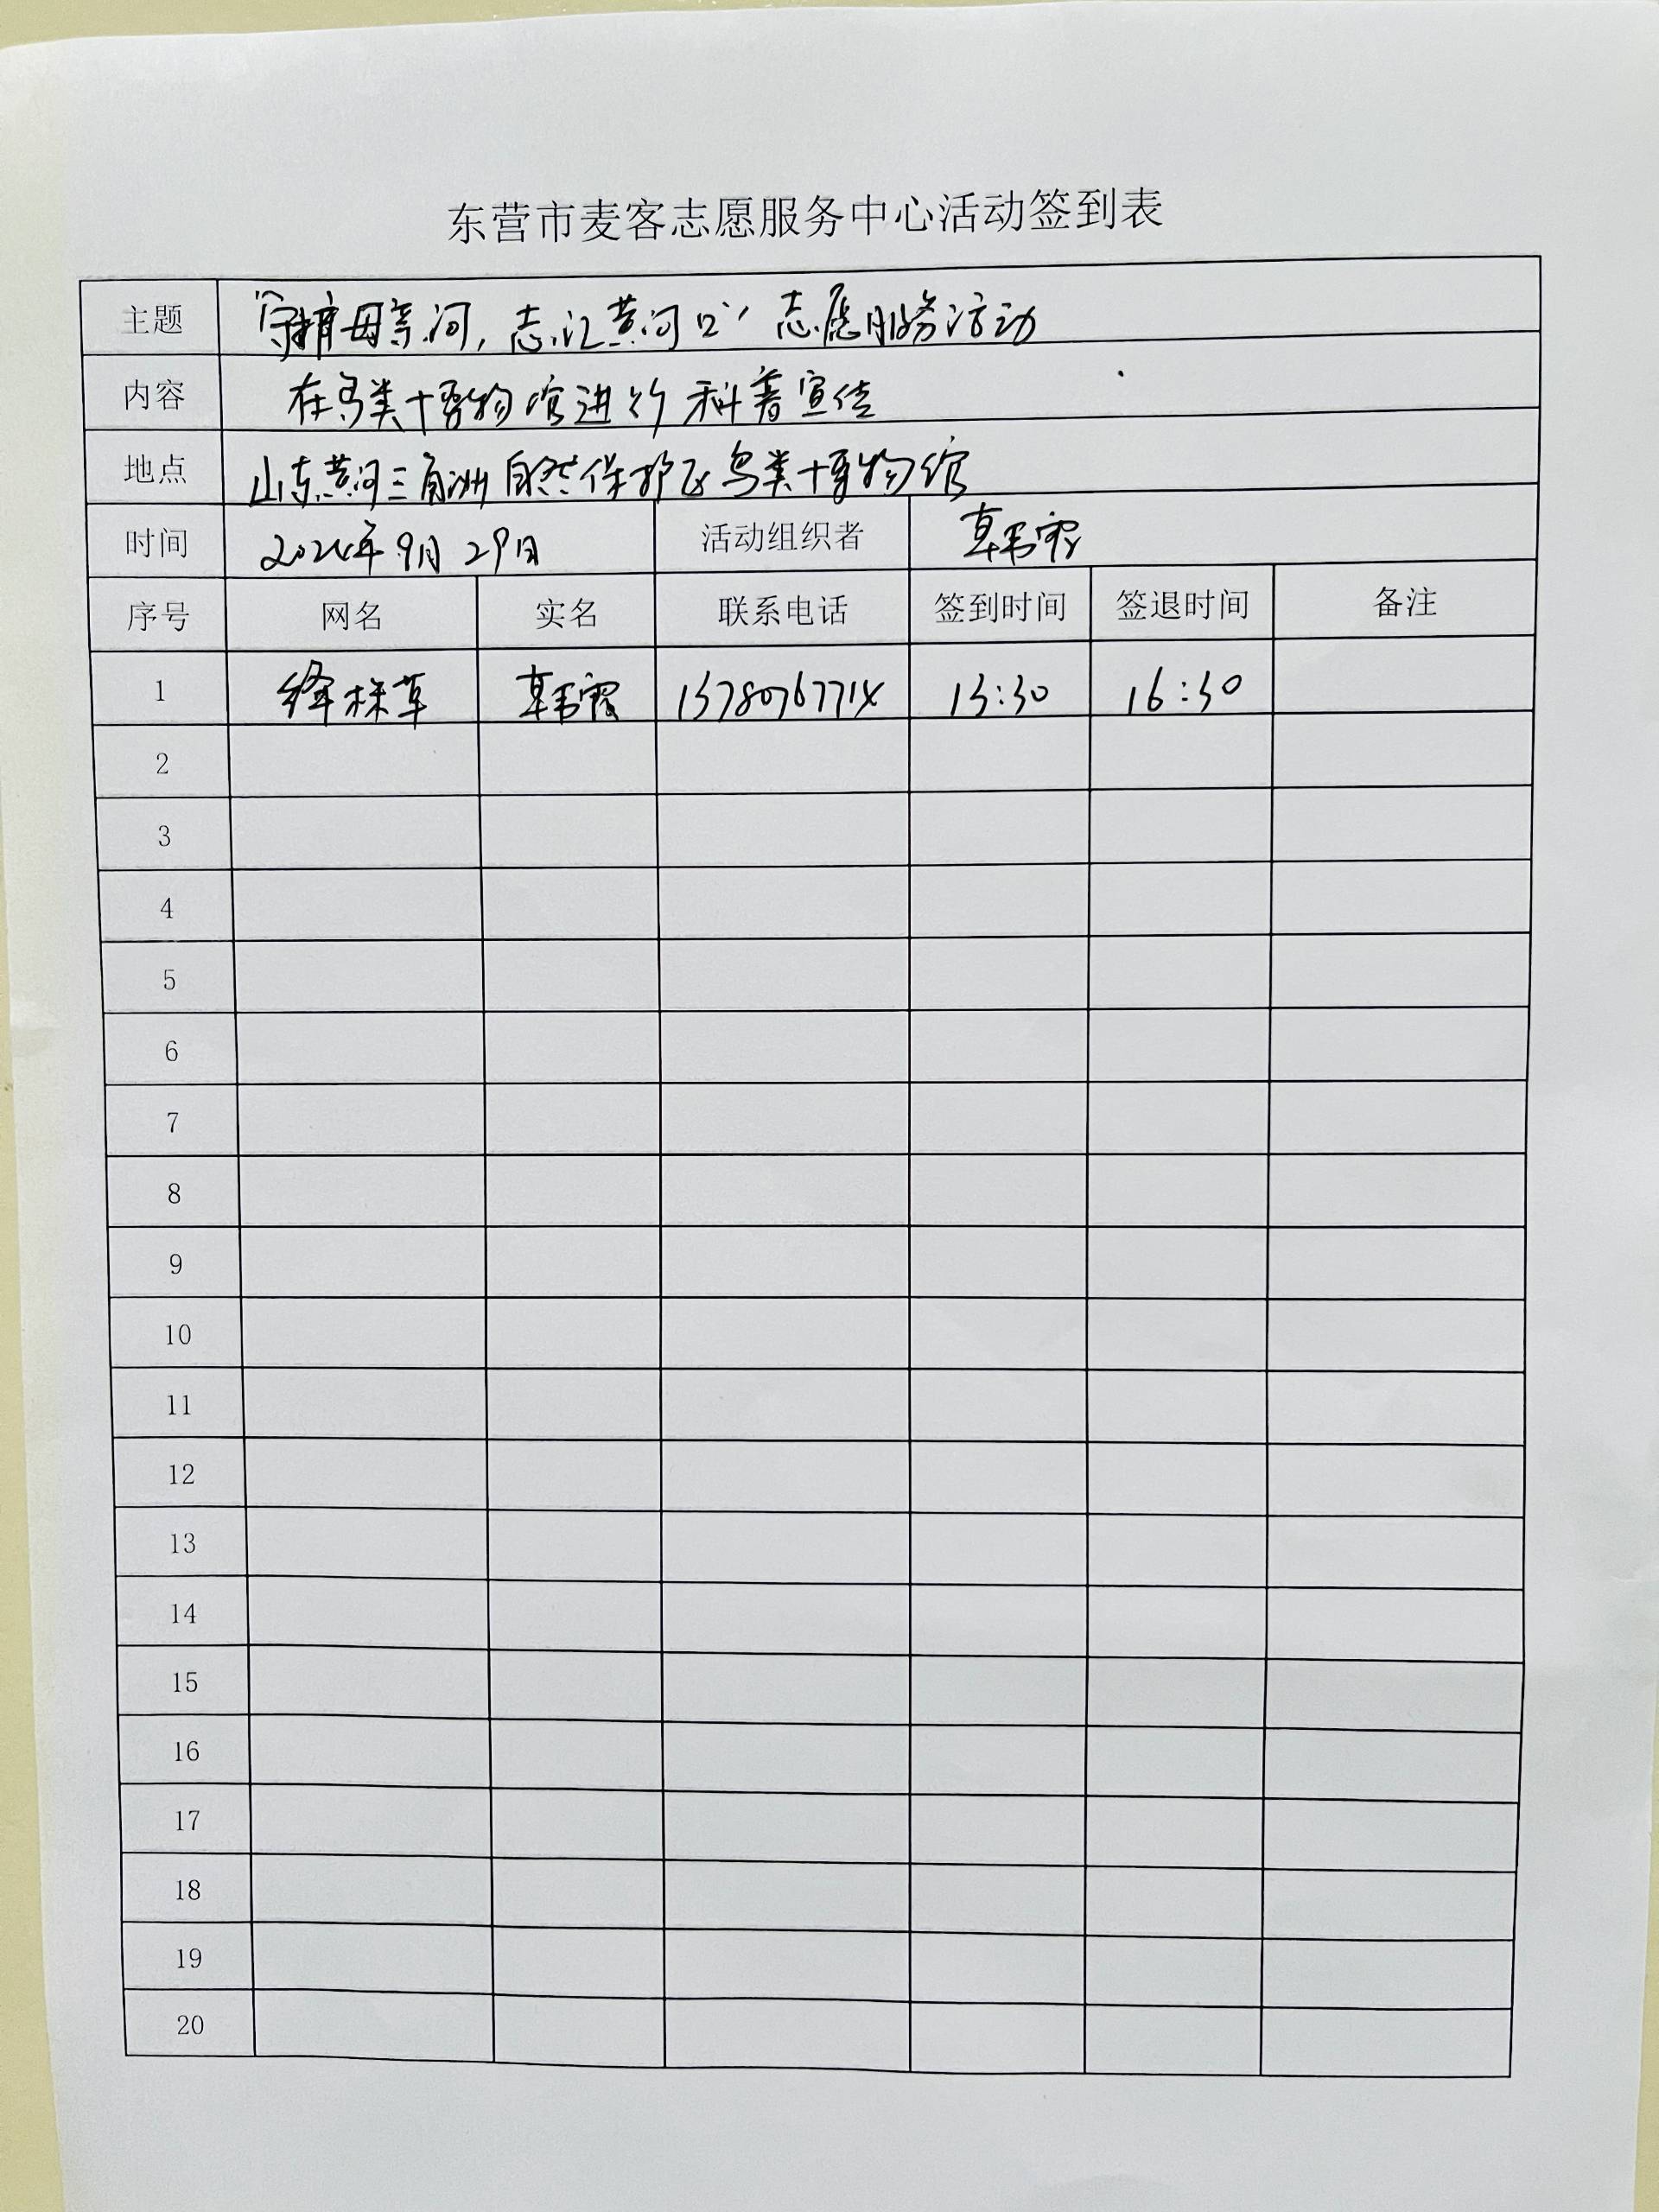 东营市麦客志愿服务中心活动签到表
主题 “守护母亲河，志汇黄河口”志愿服务活动
内容 在鸟类博物馆进行科普宣传
地点 山东黄河三角洲自然保护区鸟类博物馆
时间 2024年9月29日 活动组织者
序号 网名 实名 联系电话 签到时间 签退时间 备注
1 绛株草 13780767714 13:30 16:30
2
3
4
5
6
7
8
9
10
11
12
13
14
15
16
17
18
19
20